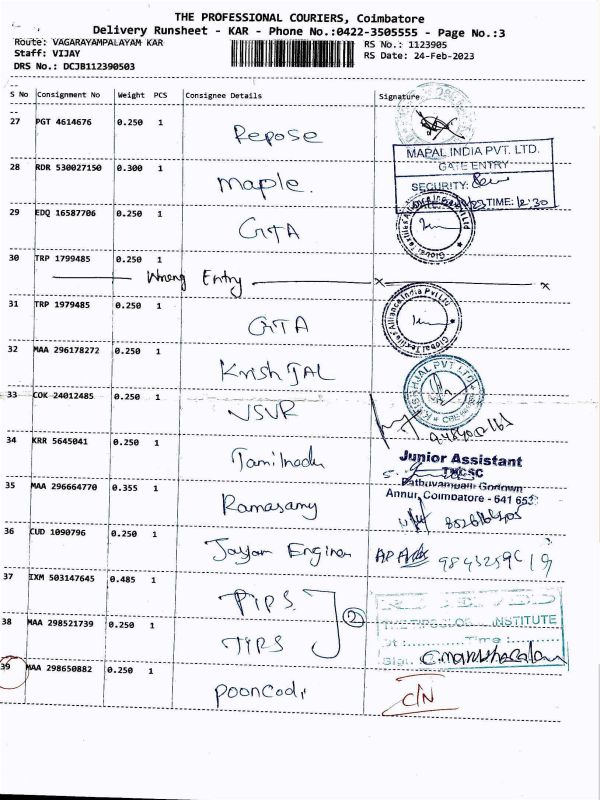 THE PROFESSIONAL COURIERS, Coimbatore
Delivery Runsheet - KAR - Phone No.:0422-3505555 - Page No.:3
Route: VAGARAYAMPALAYAM KAR
RS No.: 1123905
Staff: VIJAY
RS Date: 24-Feb-2023
DRS No.: DCJB112390503
S No Consignment No Weight PCS Consignee Details Signature
27 PGT 4614676 0.250 1 Repose
28 RDR 530027150 0.300 1 maple.
MAPAL INDIA PVT. LTD.
GATE ENTRY
SECURITY:
TIME: 12.30
29 EDQ 16587706 0.250 1 GTA
Global Textiles Alliance India Pvt Ltd
30 TRP 1799485 0.250 1
Wrong Entry x x
31 TRP 1979485 0.250 1 GTA
Global Textiles Alliance India Pvt Ltd
32 MAA 296178272 0.250 1 Krish JAL
KRISHJAL PVT LTD
33 COK 24012485 0.250 1 VSVR
34 KRR 5645041 0.250 1 Tamilnadu
Junior Assistant
TNCSC
Pathuvampalli Godown
Annur, Coimbatore - 641 653
35 MAA 296664770 0.355 1 Ramasamy
36 CUD 1090796 0.250 1 Jayam Engineer
37 IXM 503147645 0.485 1 PIPS
2
38 MAA 298521739 0.250 1 TIPS
INSTITUTE
Dt :.............Time :............
Sign.
39 MAA 298650882 0.250 1 Pooncodi
C/N